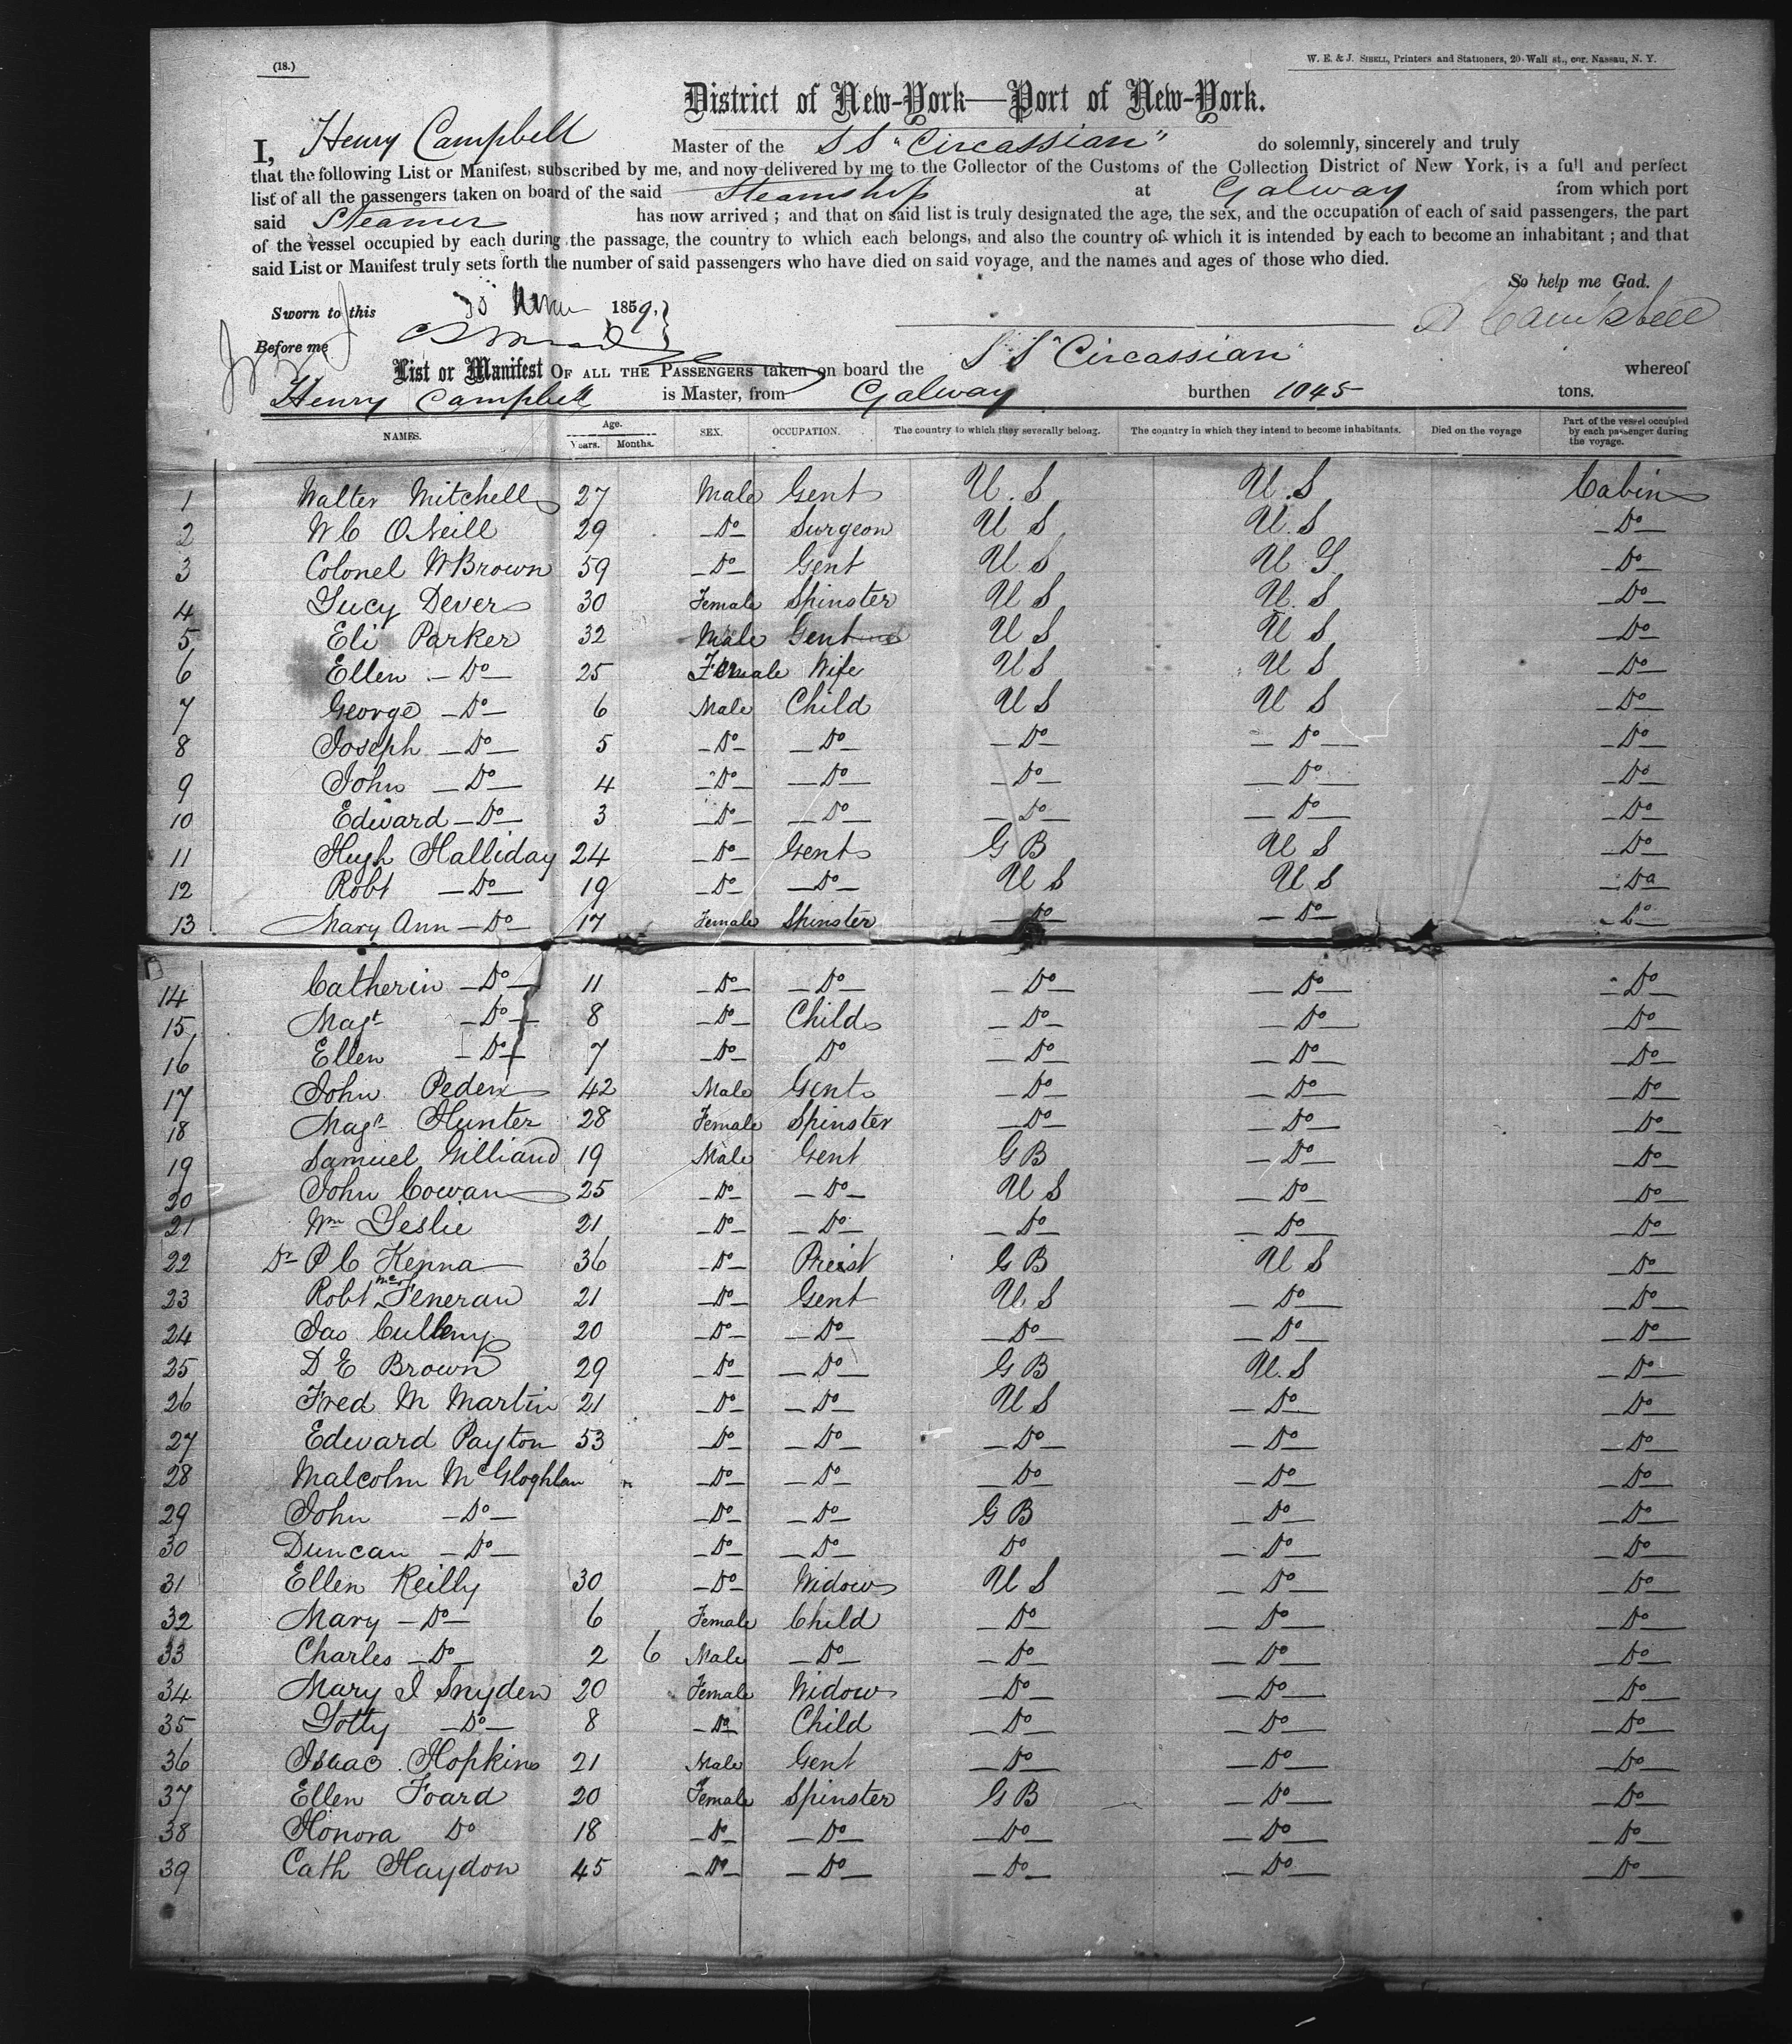 (18.)
W. E. & J. SIBELL, Printers and Stationers, 20 Wall st., cor. Nassau, N. Y.
District of New-York—Port of New-York.
I, Henry Campbell Master of the SS "Circassian" do solemnly, sincerely and truly
that the following List or Manifest, subscribed by me, and now delivered by me to the Collector of the Customs of the Collection District of New York, is a full and perfect
list of all the passengers taken on board of the said Steamship at Galway from which port
said Steamer has now arrived ; and that on said list is truly designated the age, the sex, and the occupation of each of said passengers, the part
of the vessel occupied by each during the passage, the country to which each belongs, and also the country of which it is intended by each to become an inhabitant ; and that
said List or Manifest truly sets forth the number of said passengers who have died on said voyage, and the names and ages of those who died.
So help me God.
Sworn to this 1859, Campbell
Before me
List or Manifest OF ALL THE PASSENGERS taken on board the SS "Circassian" whereof
Henry Campbell is Master, from Galway burthen 1045 tons.
NAMES. Age. Years. Months. SEX. OCCUPATION. The country to which they severally belong. The country in which they intend to become inhabitants. Died on the voyage Part of the vessel occupied by each passenger during the voyage.
1 Walter Mitchell 27 Male Gent U.S U.S Cabin
2 W C O'Neill 29 Do Surgeon U S U.S Do
3 Colonel W Brown 59 Do Gent U S U S Do
4 Lucy Dever 30 Female Spinster U S U.S Do
5 Eli Parker 32 Male Gent U S U S Do
6 Ellen Do 25 Female Wife U S U S Do
7 George Do 6 Male Child U S U S Do
8 Joseph Do 5 Do Do Do Do Do
9 John Do 4 Do Do Do Do Do
10 Edward Do 3 Do Do Do Do Do
11 Hugh Halliday 24 Do Gent G B U S Do
12 Robt Do 19 Do Do U S U S Do
13 Mary Ann Do 17 Female Spinster Do Do Do
14 Catherin Do 11 Do Do Do Do Do
15 Magt Do 8 Do Child Do Do Do
16 Ellen Do 7 Do Do Do Do Do
17 John Peden 42 Male Gent Do Do Do
18 Magt Hunter 28 Female Spinster Do Do Do
19 Samuel Gilliand 19 Male Gent G B Do Do
20 John Cowan 25 Do Do U S Do Do
21 Wm Leslie 21 Do Do Do Do Do
22 Dr P C Kenna 36 Do Preist G B U S Do
23 Robt Mc Feneran 21 Do Gent U S Do Do
24 Jas Culleny 20 Do Do Do Do Do
25 D E Brown 29 Do Do G B U.S Do
26 Fred M Martin 21 Do Do U S Do Do
27 Edward Payton 53 Do Do Do Do Do
28 Malcolm McGloghlan Do Do Do Do Do
29 John Do Do Do G B Do Do
30 Duncan Do Do Do Do Do Do
31 Ellen Reilly 30 Do Widow U S Do Do
32 Mary Do 6 Female Child Do Do Do
33 Charles Do 2 6 Male Do Do Do Do
34 Mary J Snyden 20 Female Widow Do Do Do
35 Lotty Do 8 Do Child Do Do Do
36 Isaac Hopkins 21 Male Gent Do Do Do
37 Ellen Foard 20 Female Spinster G B Do Do
38 Honora Do 18 Do Do Do Do Do
39 Cath Haydon 45 Do Do Do Do Do